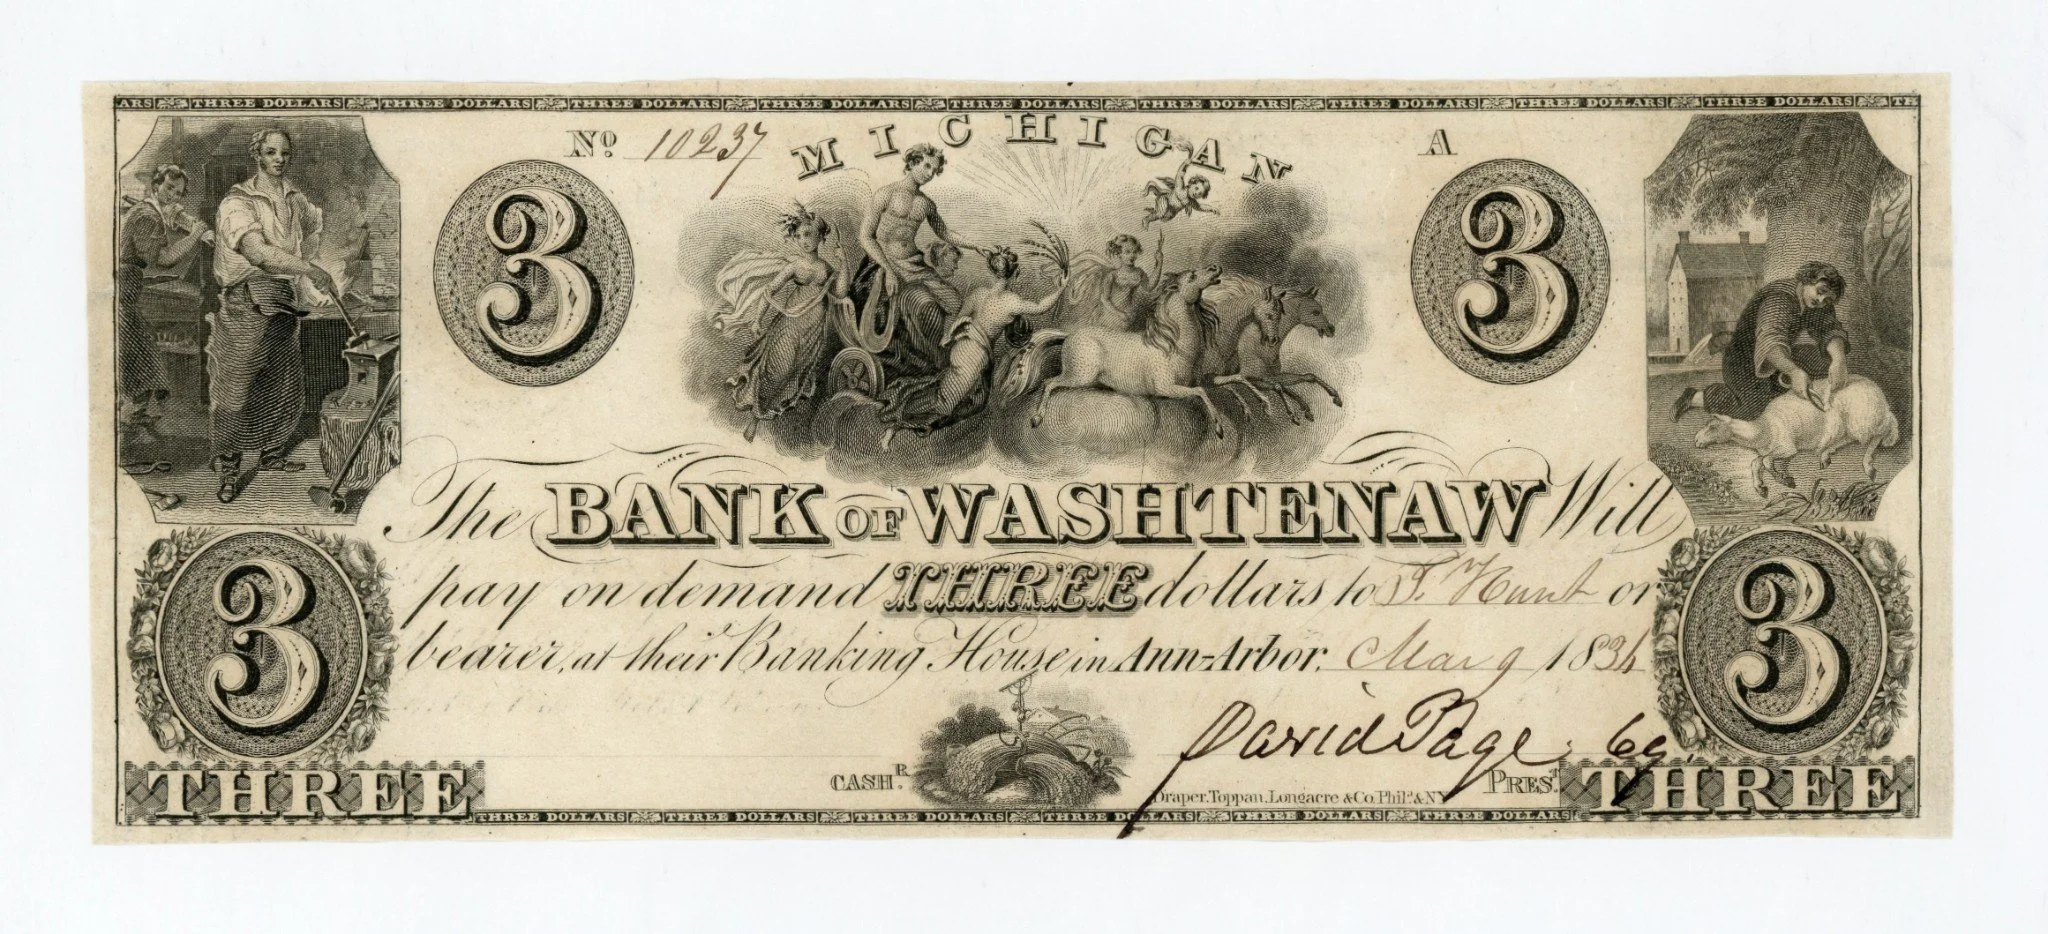 ARS THREE DOLLARS THREE DOLLARS THREE DOLLARS THREE DOLLARS THREE DOLLARS THREE DOLLARS THREE DOLLARS THREE DOLLARS THREE DOLLARS TH
No. 10237 MICHIGAN A
3 3
The BANK OF WASHTENAW Will
pay on demand THREE dollars to T. Hunt or
bearer, at their Banking House in Ann-Arbor. 183
3 3
David Page
CASHR. PREST.
Draper, Toppan, Longacre & Co. Phila. & NY
THREE THREE
THREE DOLLARS THREE DOLLARS THREE DOLLARS THREE DOLLARS THREE DOLLARS THREE DOLLARS